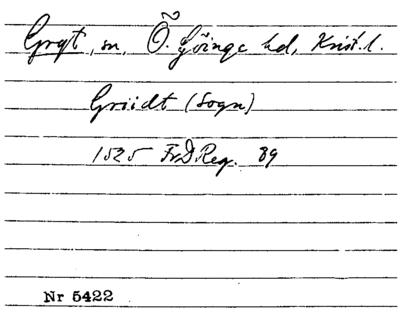 Gryt, sn, Ö. Göinge hd, Krist. l.
Griidt (Sogn)
1525 FrDReg. 89
Nr 5422